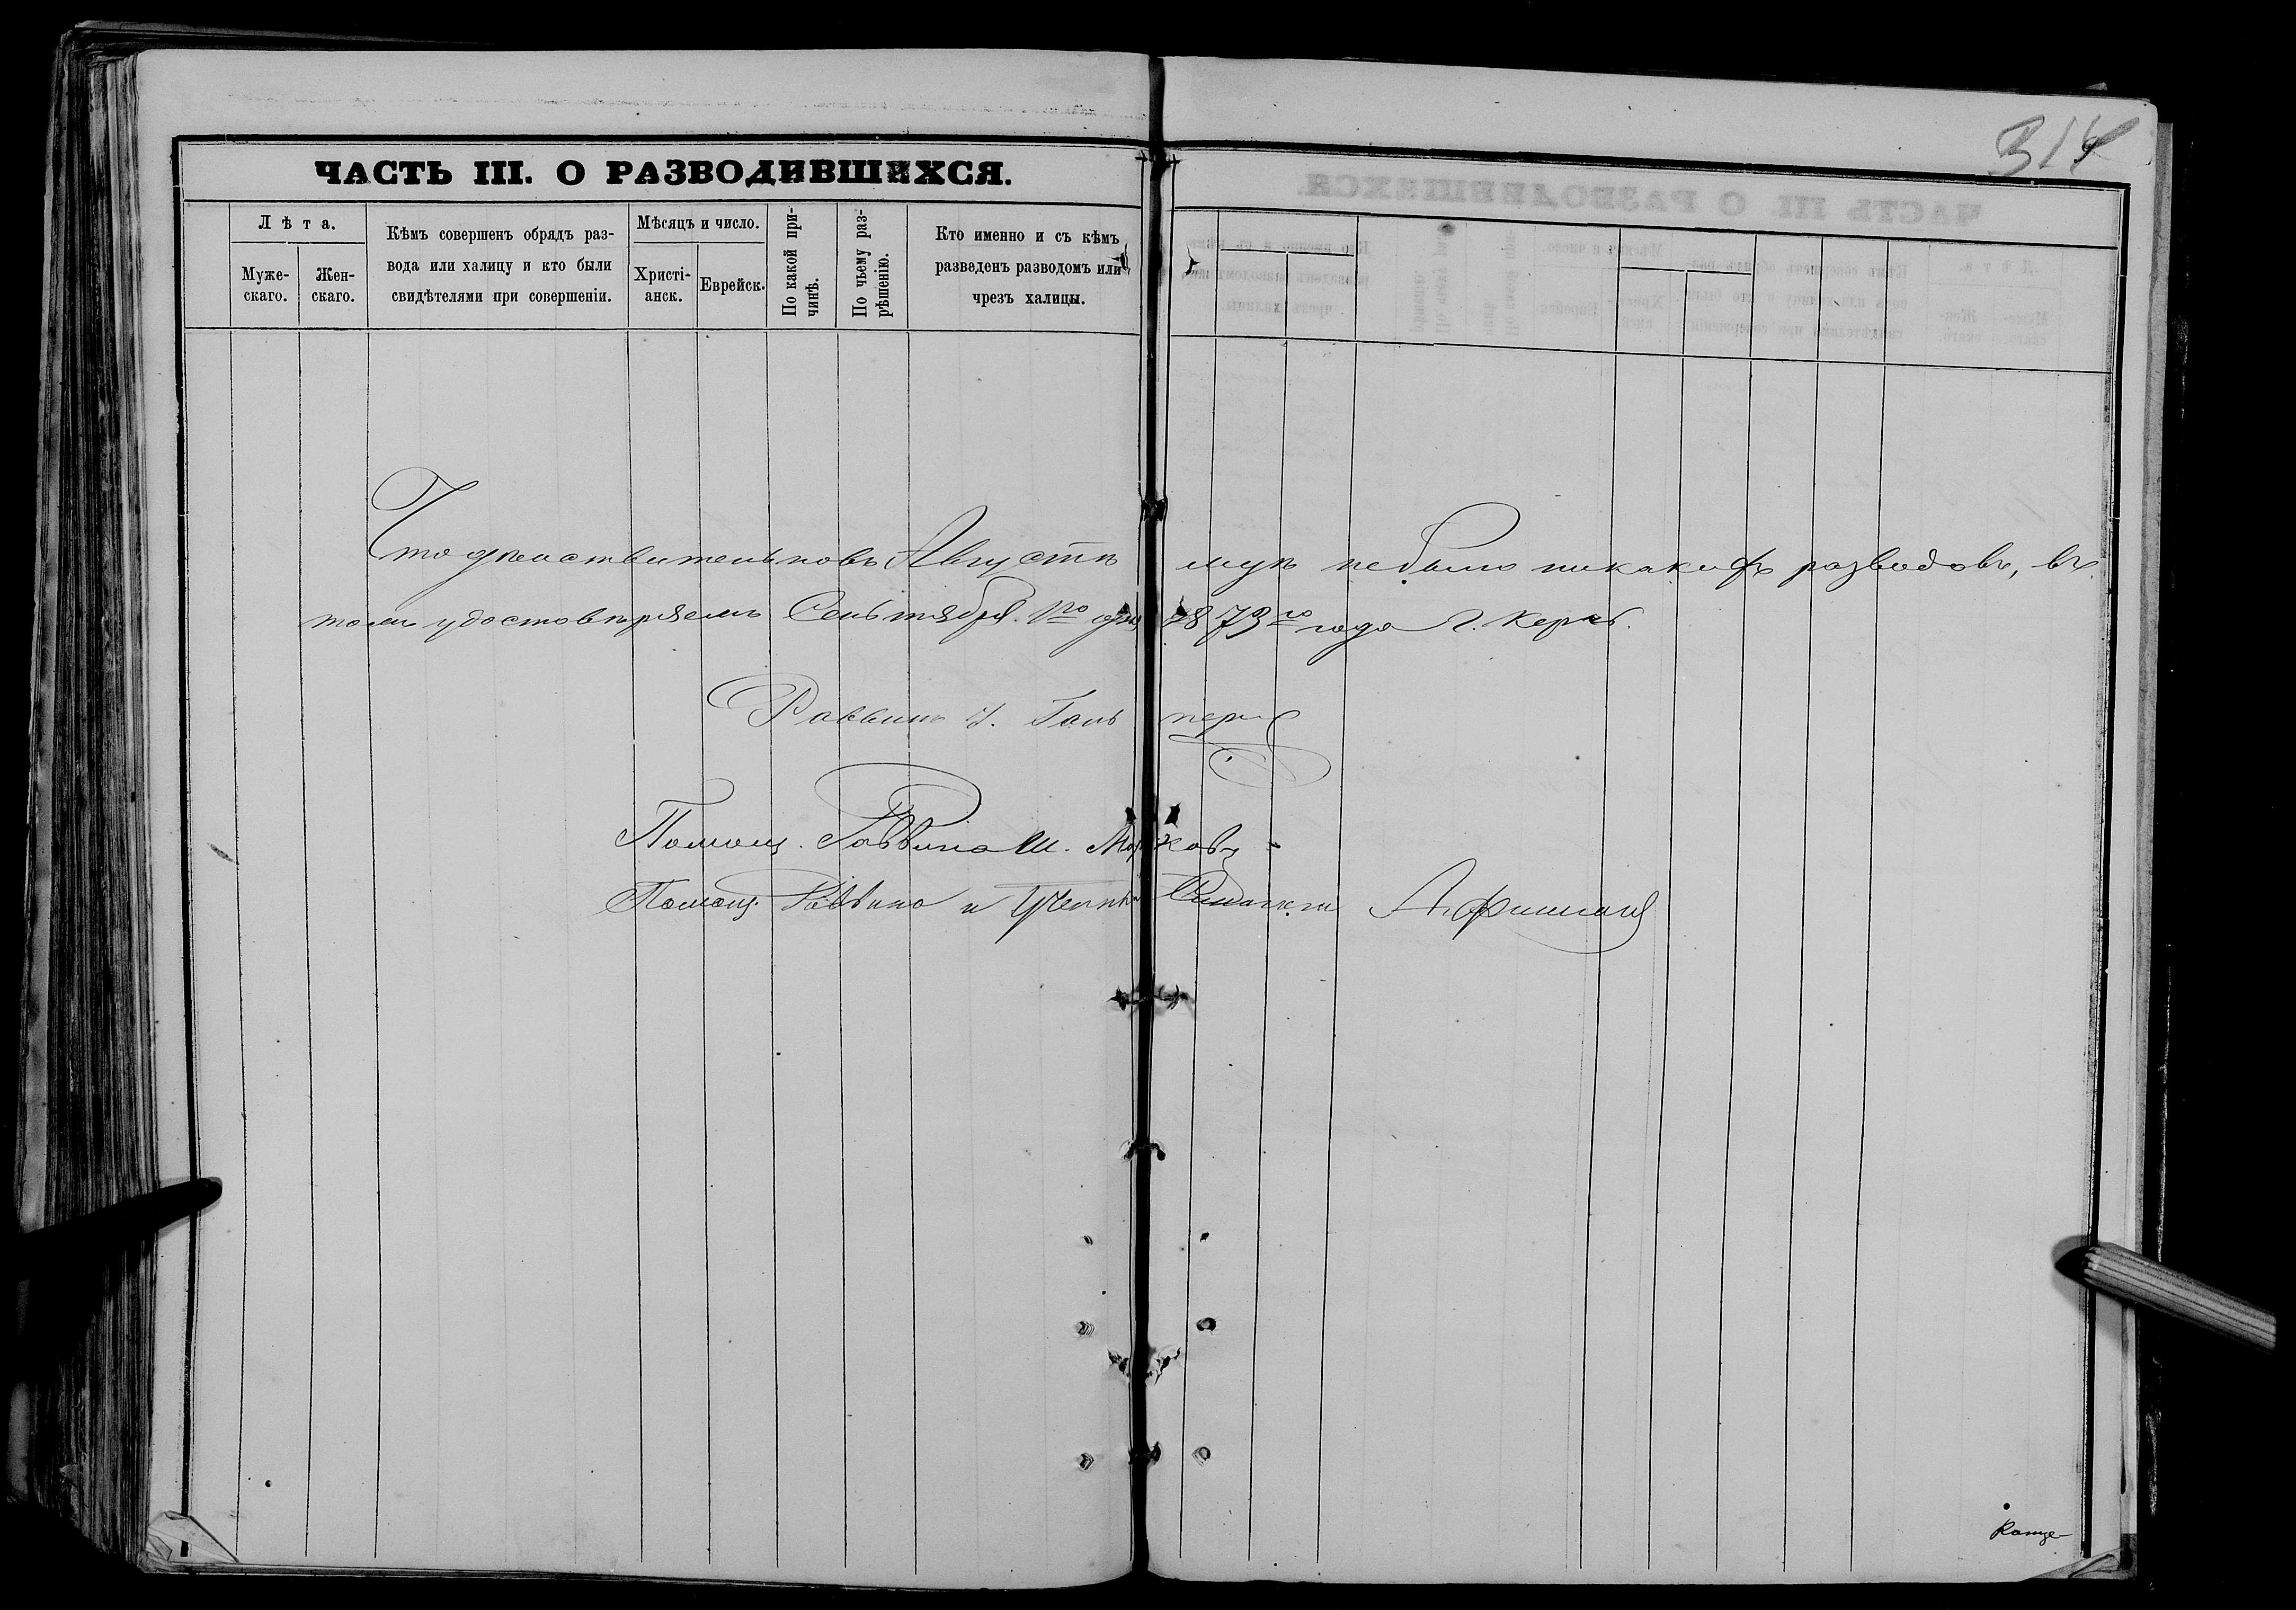 314
ЧАСТЬ III. О РАЗВОДИВШИХСЯ.
Лѣта.
Муже-
скаго.
Жен-
скаго.
Кѣмъ совершенъ обрядъ раз-
вода или халицу и кто были
свидѣтелями при совершеніи.
Мѣсяцъ и число.
Христі-
анск.
Еврейск.
По какой при-
чинѣ.
По чьему раз-
рѣшенію.
Кто именно и съ кѣмъ
разведенъ разводомъ или
чрезъ халицы.
Что дѣйствительно въ Августѣ м-цѣ небыло никакихъ разводовъ, въ
томъ удостовѣряемъ Сентября 1го дня 1873го года г. Керчь.
Раввинъ Гальперн
Помощ. Раввина Ш.
Помощ. Раввина и Ученый А. Фишман